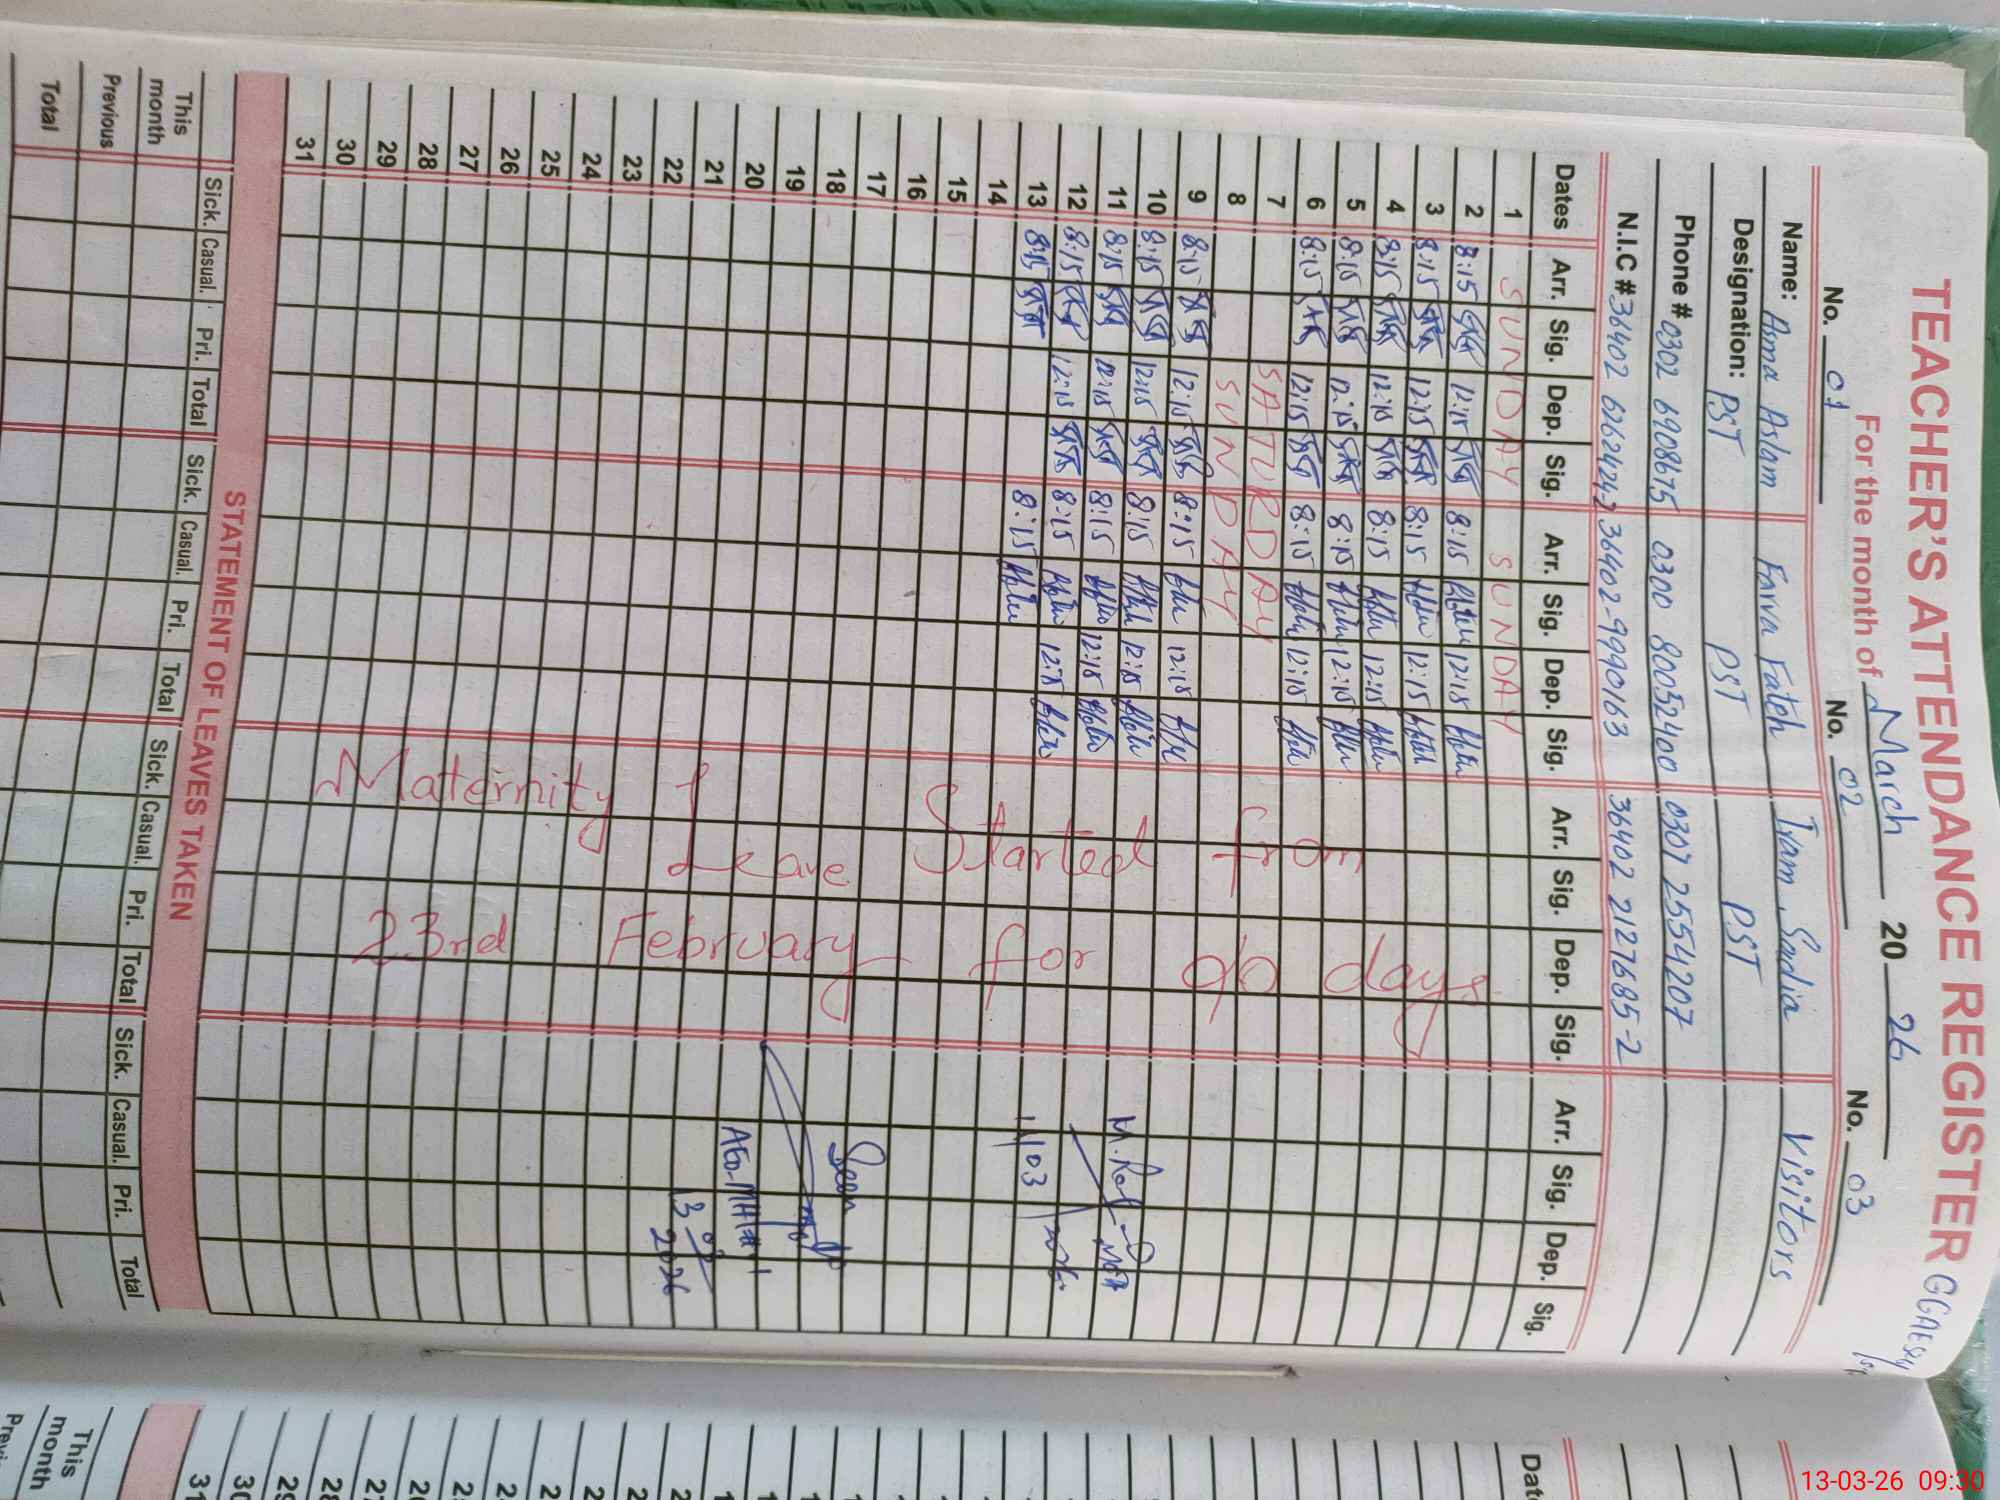 TEACHER'S ATTENDANCE REGISTER
For the month of March 2026
No. 01 No. 02 No. 03
Name: Asma Aslam Farva Fateh Iram Sadia Visitors
Designation: PST PST PST
Phone # 0302 6908675 0300 8005240 0307 2554207
N.I.C # 36402 36402-9990163 36402 2127685-2
Dates Arr. Sig. Dep. Sig. Arr. Sig. Dep. Sig. Arr. Sig. Dep. Sig. Arr. Sig. Dep. Sig.
1 SUNDAY SUNDAY
2 8:15 12:15 8:15 12:15
3 8:15 12:15 8:15 12:15
4 8:15 12:15 8:15 12:15
5 8:15 12:15 8:15 12:15
6 8:15 12:15 8:15 12:15
7 SATURDAY
8 SUNDAY
9 8:15 12:15 8:15 12:15
10 8:15 12:15 8:15 12:15
11 8:15 12:15 8:15 12:15
12 8:15 12:15 8:15 12:15
13 8:15 8:15
14
15
16
17
18
19
20
21
22
23
24
25
26
27
28
29
30
31
Maternity Leave Started from
23rd February for 90 days
11/03
Seen
13
2026
STATEMENT OF LEAVES TAKEN
Sick. Casual. Pri. Total Sick. Casual. Pri. Total Sick. Casual. Pri. Total Sick. Casual. Pri. Total
This month
Previous
Total
Dat
31
30
29
28
This month
Previ
13-03-26 09:30